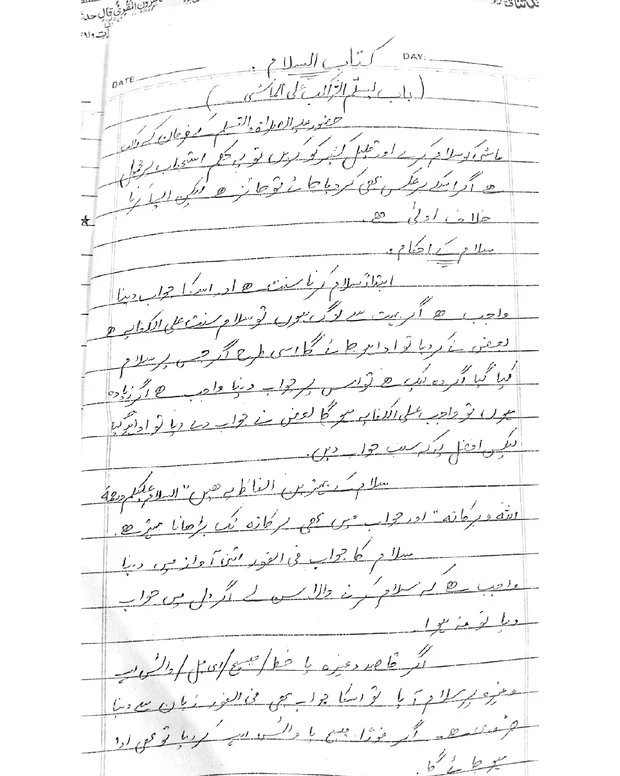 کتاب السلام .
DAY:
DATE
(باب یسلم الراکب علی الماشی)
حضور علیہ الصلاۃ والتسلیم کے فرمان کہ راکب
ماشی کو سلام کرے اور قلیل کثیر کو کریں تو یہ حکم استحباب پر محمول
ھے اگر اسکے برعکس بھی کردیا جائے تو جائز ھے لیکن ایسا کرنا
خلاف اولیٰ ھے۔
سلام کے احکام .
ابتداءً سلام کرنا سنت ھے اور اسکا جواب دینا
واجب ھے اگر بہت سے لوگ ہوں تو سلام سنت علی الکفایہ ھے
بعض نے کردیا تو ادا ہو جائے گا اسی طرح اگر جس پر سلام
کیا گیا اگر وہ ایک ھے تو اس پر جواب دینا واجب ھے اگر زیادہ
ہوں تو واجب علی الکفایہ ہو گا بعض نے جواب دے دیا تو ادا ہو گیا
لیکن افضل یہ کہ سب جواب دیں.
سلام کے بہترین الفاظ یہ ھیں "السلام علیکم ورحمۃ
اللہ وبرکاتہ" اور جواب میں بھی برکاتہ تک بڑھانا بہتر ھے۔
سلام کا جواب فی الفور اتنی آواز میں دینا
واجب ھے کہ سلام کرنے والا سن لے اگر دل میں جواب
دیا تو نہ ہوا.
اگر قاصد وغیرہ یا خط / میسج / ای میل / واٹس ایپ
وغیرہ پر سلام آیا تو اسکا جواب بھی فی الفور زبان سے دینا
ضروری ھے۔ اگر فوراً میسج یا واٹس ایپ کردیا تو بھی ادا
ہو جائے گا.